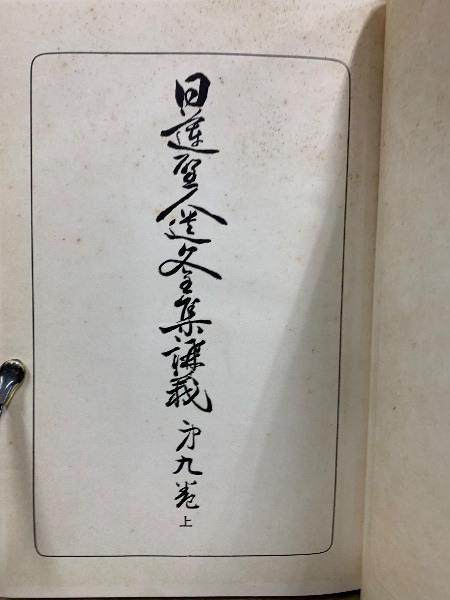 日蓮聖人遺文全集講義 第九巻 上